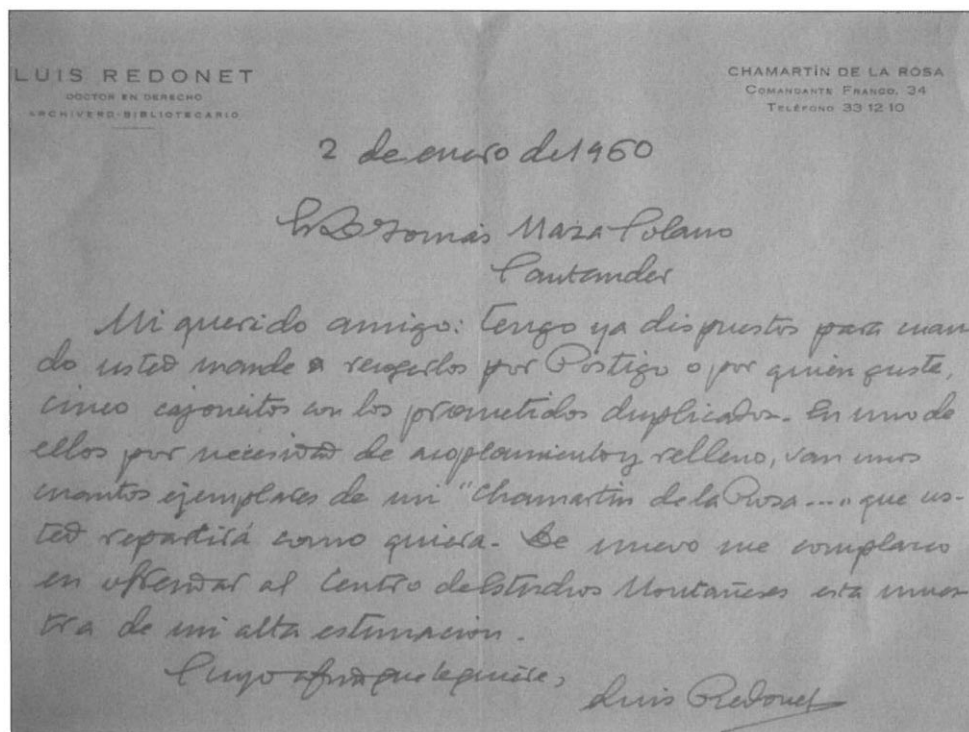 LUIS REDONET
DOCTOR EN DERECHO
ARCHIVERO-BIBLIOTECARIO
CHAMARTÍN DE LA ROSA
COMANDANTE FRANCO, 34
TELÉFONO 33 12 10
2 de enero de 1960
Tomás Maza Solano
Santander
Mi querido amigo: Tengo ya dispuestos para cuan-
do usted mande a recogerlos por Postigo o por quien guste,
cinco cajoncitos con los prometidos duplicados. En uno de
ellos por necesidad de acoplamiento y relleno, van unos
cuantos ejemplares de mi "Chamartín de la Rosa...." que us-
ted repartirá como quiera. De nuevo me complazco
en ofrendar al Centro de Estudios Montañeses esta mues-
tra de mi alta estimación.
Suyo que le quiere,
Luis Redonet